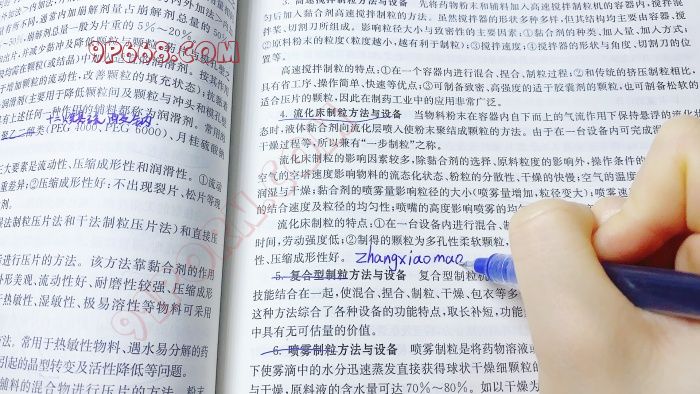 加入~内加法
行有所不同,通常内加崩解剂量占崩解总量的50%
~50%,崩解剂总量一般为片重的5%~20%
出片,并减少黏冲及降低颗粒
润滑剂。按其作用
增加颗粒的流动性,改善颗粒的填充状态);抗黏
润滑剂(主要用于降低颗粒间及颗粒与冲头和模孔
有上述任何一种作用的辅料都称为润滑剂。常用
聚乙二醇类(PEG 4000、PEG 6000)、月桂硫酸
大要素是流动性、压缩成形性和润滑性。①流动
重差异;②压缩成形性好:不出现裂片、松片等现
剂。
湿法制粒压片法和干法制粒压片法)和直接压
行压片的方法。该方法靠黏合剂的作用
外形美观、流动性好、耐磨性较强、压缩成形
于热敏性、湿敏性、极易溶性等物料可采用
方法。常用于热敏性物料、遇水易分解的药
引起的晶型转变及活性降低等问题。
辅料的混合物进行压片的方法。粉末
3. 高速搅拌制粒方法与设备 先将药物粉末和辅料加入高速搅拌制粒机的容器内,搅拌混
匀后加入黏合剂高速搅拌制粒的方法。虽然搅拌器的形状多种多样,但其结构均主要由容器、搅
拌桨、切割刀所组成。影响粒径大小与致密性的主要因素:①黏合剂的种类、加入量、加入方式;
②原料粉末的粒度(粒度越小,越有利于制粒);③搅拌速度;④搅拌器的形状与角度、切割刀的位
置等。
高速搅拌制粒的特点:①在一个容器内进行混合、捏合、制粒过程;②和传统的挤压制粒相比,
具有省工序、操作简单、快速等优点;③可制备致密、高强度的适于胶囊剂的颗粒,也可制备松软的
适合压片的颗粒,因此在制药工业中的应用非常广泛。
4. 流化床制粒方法与设备 当物料粉末在容器内自下而上的气流作用下保持悬浮的流化状
态时,液体黏合剂向流化层喷入使粉末聚结成颗粒的方法。由于在一台设备内可完成
干燥过程等,所以兼有“一步制粒”之称。
流化床制粒的影响因素较多,除黏合剂的选择、原料粒度的影响外,操作条件的
空气的空塔速度影响物料的流态化状态、粉粒的分散性、干燥的快慢;空气的温度
润湿与干燥;黏合剂的喷雾量影响粒径的大小(喷雾量增加,粒径变大);喷雾速
的结合速度及粒径的均匀性;喷嘴的高度影响喷雾的均
流化床制粒的特点:①在一台设备内进行混合、制
时间,劳动强度低;②制得的颗粒为多孔性柔软颗粒,
性、压缩成形性好。 zhangxiaomao
5. 复合型制粒方法与设备 复合型制粒机
技能结合在一起,使混合、捏合、制粒、干燥、包衣等多
这种方法综合了各种设备的功能特点,取长补短,功能
中具有无可估量的价值。
6. 喷雾制粒方法与设备 喷雾制粒是将药物溶液或
下使雾滴中的水分迅速蒸发直接获得球状干燥细颗粒的
与干燥,原料液的含水量可达70%~80%。如以干燥为